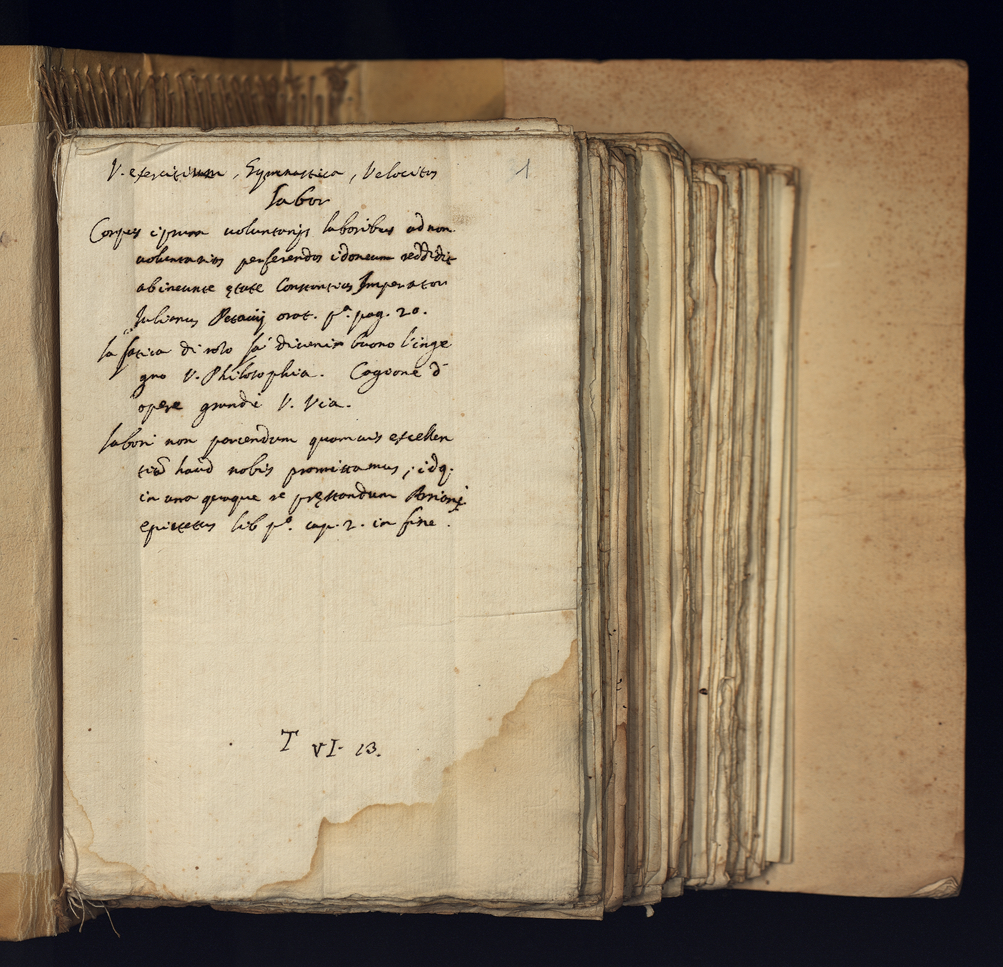 V. exercitium, Gymnastica, Velocitas
1
Labor
Corpus ipsum voluntarijs laboribus ad non
voluntarios perferendos idoneum reddidit
ab ineunte ętate Constantius Imperator
Julianus Petavij orat. pª. pag. 20.
la fatica di rolo fa divenir buono l'inge
gno V. Philosophia. Cagione d
opere grandi V. Via.
Labori non parcendum quamvis excellen
tiā haud nobis promittamus; idq.
in una quaque re pręstandum Arriani
epictetus lib pº. cap. 2. in fine.
T VI. 13.